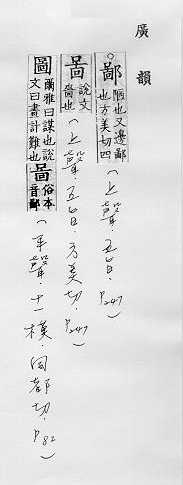 廣韻
○鄙 陋也又邊鄙也方美切四（上聲．五旨．P247）
啚 說文嗇也（上聲．五旨．方美切．P247）
圖 爾雅曰謀也說文曰畫計難也啚俗本音鄙（平聲．十一模．同都切．P82）